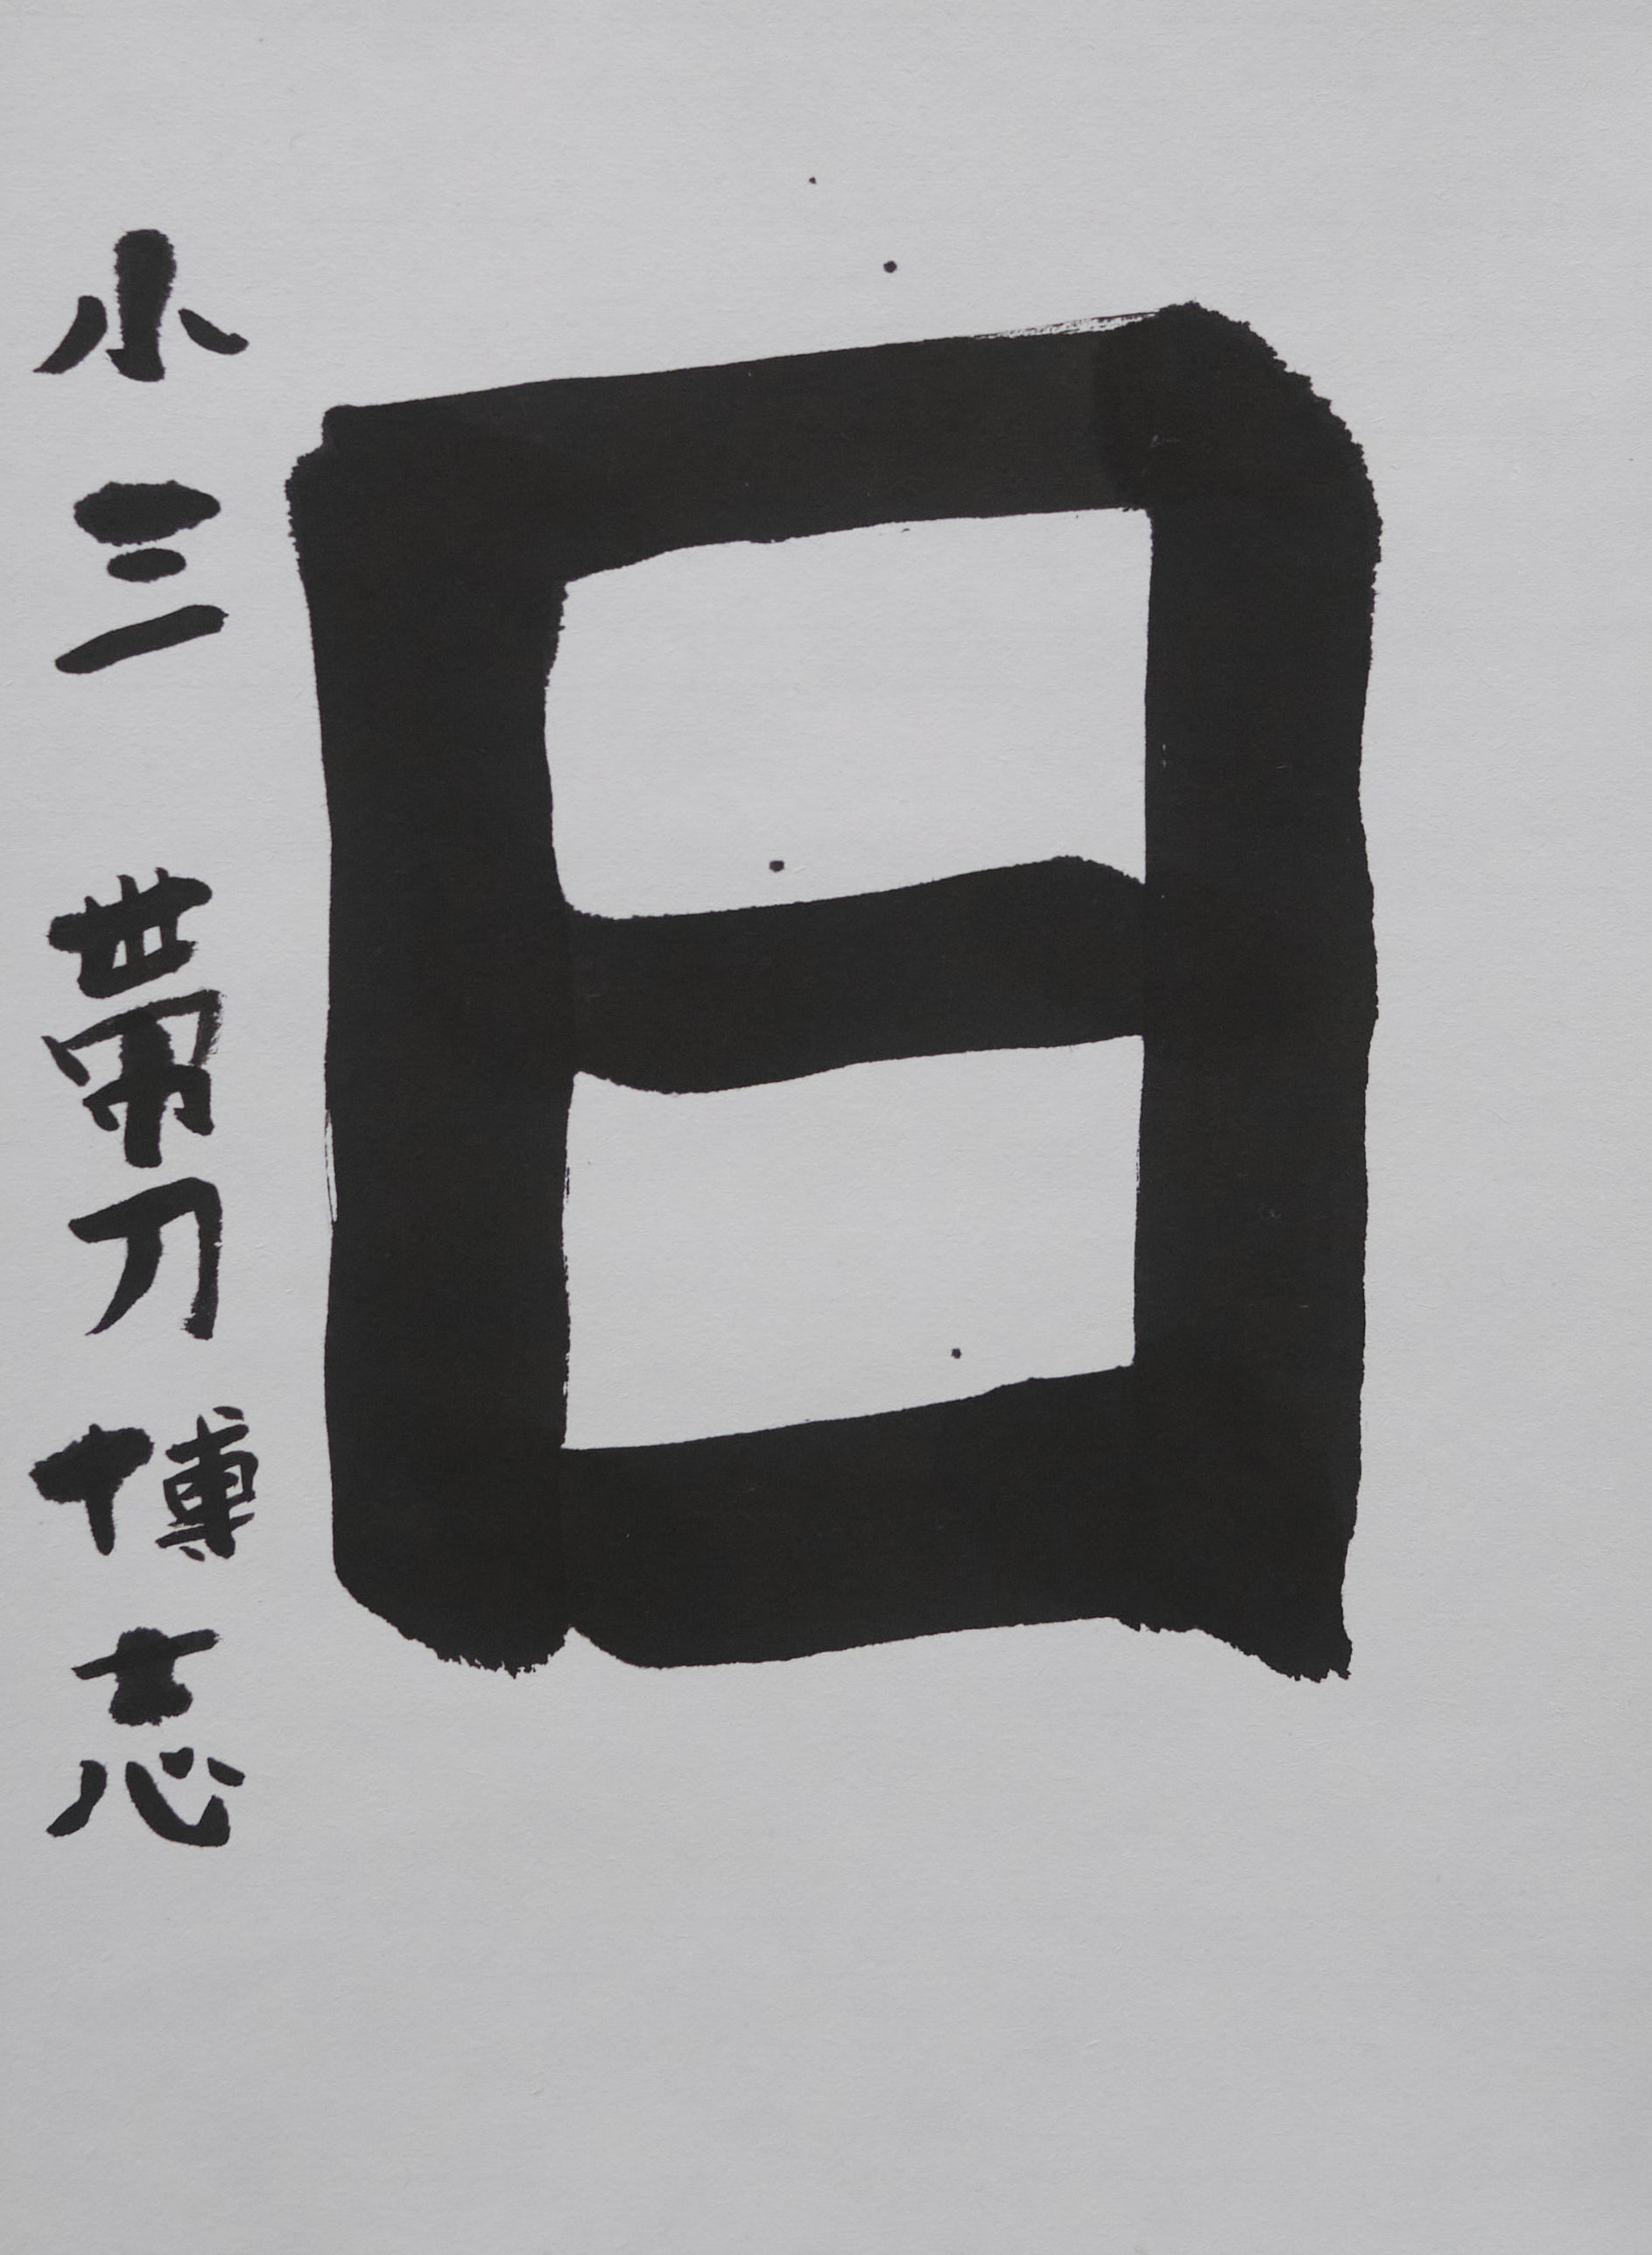 日
小三 帯刀 博志